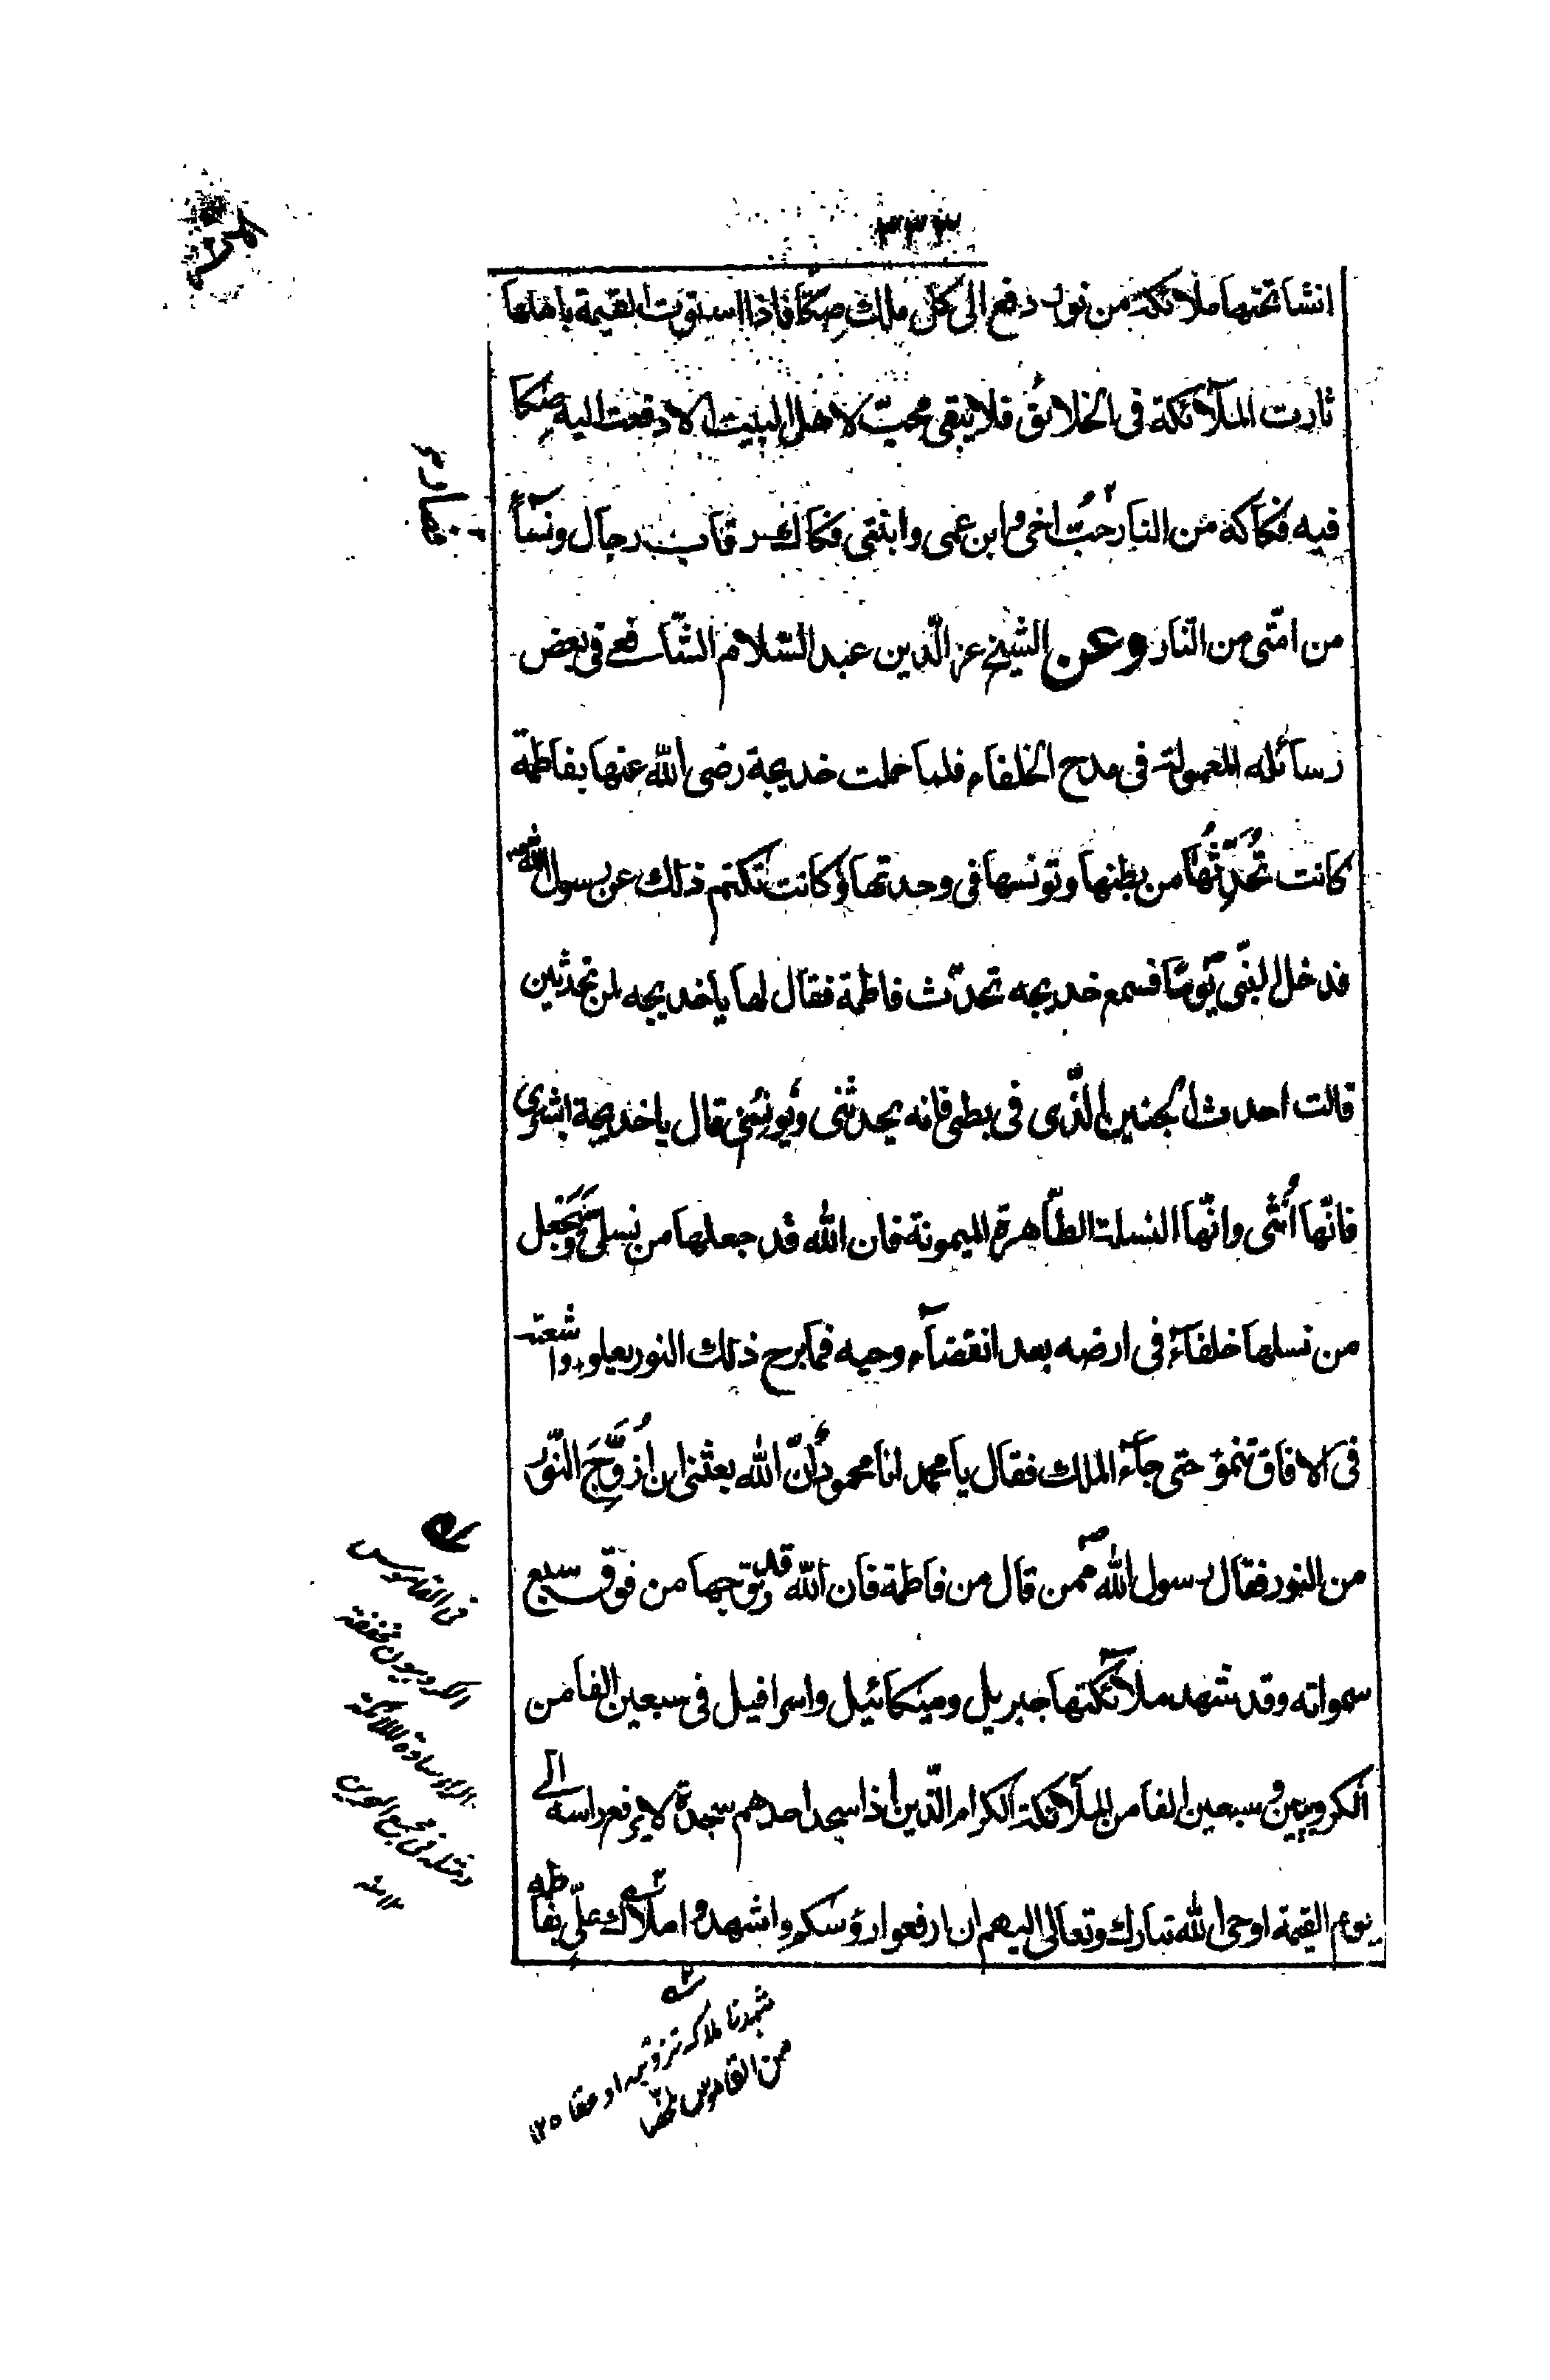 ٣٣٣
انشا تحتها ملائكة من نور دفع الى كل ملك صكّا فاذا استوت القيمة باهلها
ثارت الملآئكة فى الخلائق فلا يبقى محبّ لاهل البيت الا دفعت اليه صكا
فيه فكاكه من النار حبّ اخى وابن عمى وابنتى فكاك رقاب رجال ونسآء
من امّتى من النّار وعن الشيخ عز الّدين عبد السّلام الشّافعے فى بعض
رسائله المعمولة فى مدح الخلفاء فلما حملت خديجة رضى الله عنها بفاطمة
كانت تُحَدِّثُها من بطنها وتونسها فى وحدتها وكانت تكتم ذلك عن رسول الله
فدخل النبّى يومًا فسمع خديجه تحدّث فاطمة فقال لها يا خديجه لمن تحدثين
قالت احدث الجنين الّذى فى بطنى فانه يحدثنى ويونسنى قال يا خديجة ابشرى
فانّها أُنثى وانّها النسلة الطّاهرة الميمونة فان الله قد جعلها من نسلى وسَيَجعل
من نسلها خلفآء فى ارضه بعد انقضآء وحيه فما برح ذلك النور يعلو واشعته
فى الافاق تنمو حتى جآء الملك فقال يا محمد انا محمود انّ الله بعثنى ان اُزَوِّجَ النّور
من النور فقال رسول الله ص ممن قال من فاطمة فان الله قد زوّجها من فوق سبع
سمواته وقد شهد ملآئكتها جبريل وميكائيل واسرافيل فى سبعين الفا من
الكروبين وسبعين الفا من الملآئكة الكرام الّذين اذا سجد احدهم سجدة لا يرفع راسه الى
يوم القيمة اوحى الله تبارك وتعالى اليهم ان ارفعوا رؤسكم واشهدوا املاك علىّ بفاطمه
فى القاموس
الكروبيون مخففة
الراء سادة الملائكة
ومثله فى مجمع البحرين
١٢ منه
شهدنا ملاكه تزويجه او عقده ١٢
من القاموس